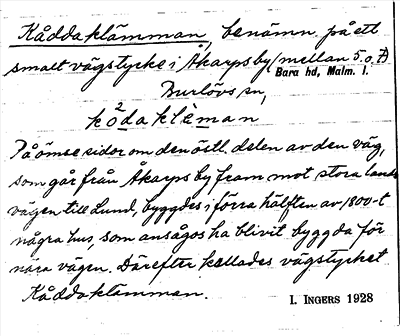 Kåddaklämman, benämn. på ett
smalt vägstycke i Åkarps by (mellan 5 o. 7)
Bara hd, Malm. l.
Burlövs sn,
ko²daklèman
På ömse sidor om den östl. delen av den väg,
som går från Åkarps by fram mot stora lands
vägen till Lund, byggdes i förra hälften av 1800-t
några hus, som ansågos ha blivit byggda för
nära vägen. Därefter kallades vägstycket
Kåddaklämman.
I. INGERS 1928